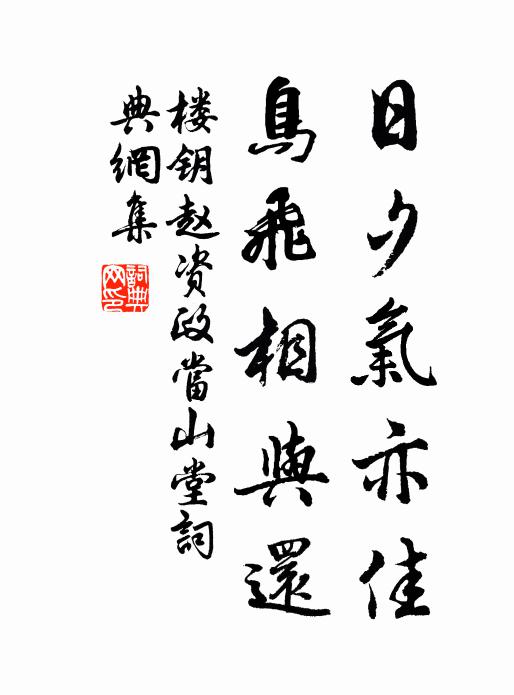 日夕氣亦佳
鳥飛相與還
楼钥赵资政當山堂詞
典網集
詞典
网印